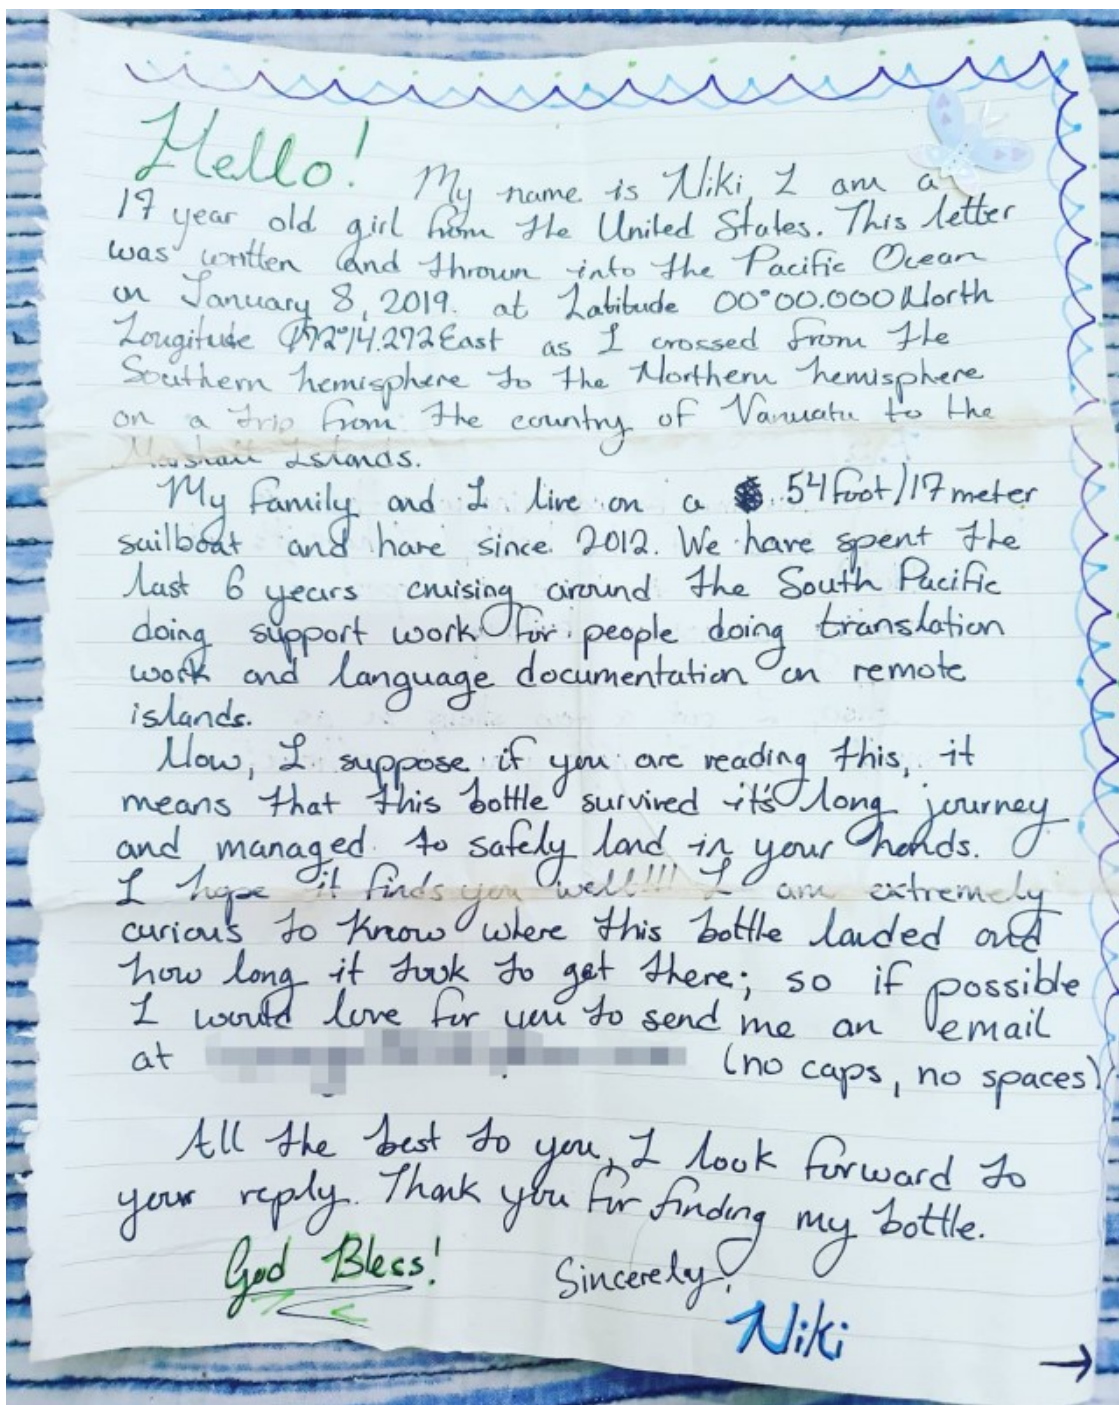 Hello!
My name is Niki, I am a
17 year old girl from the United States. This letter
was written and thrown into the Pacific Ocean
on January 8, 2019. at Latitude 00°00.000 North
Longitude 172°14.272 East as I crossed from the
Southern hemisphere to the Northern hemisphere
on a trip from the country of Vanuatu to the
Marshall Islands.
My family and I live on a 54 foot/17 meter
sailboat and have since 2012. We have spent the
last 6 years cruising around the South Pacific
doing support work for people doing translation
work and language documentation on remote
islands.
Now, I suppose if you are reading this, it
means that this bottle survived it's long journey
and managed to safely land in your hands.
I hope it finds you well!!! I am extremely
curious to know where this bottle landed and
how long it took to get there; so if possible
I would love for you to send me an email
at (no caps, no spaces)
All the best to you, I look forward to
your reply. Thank you for finding my bottle.
God Bless!
Sincerely,
Niki
→